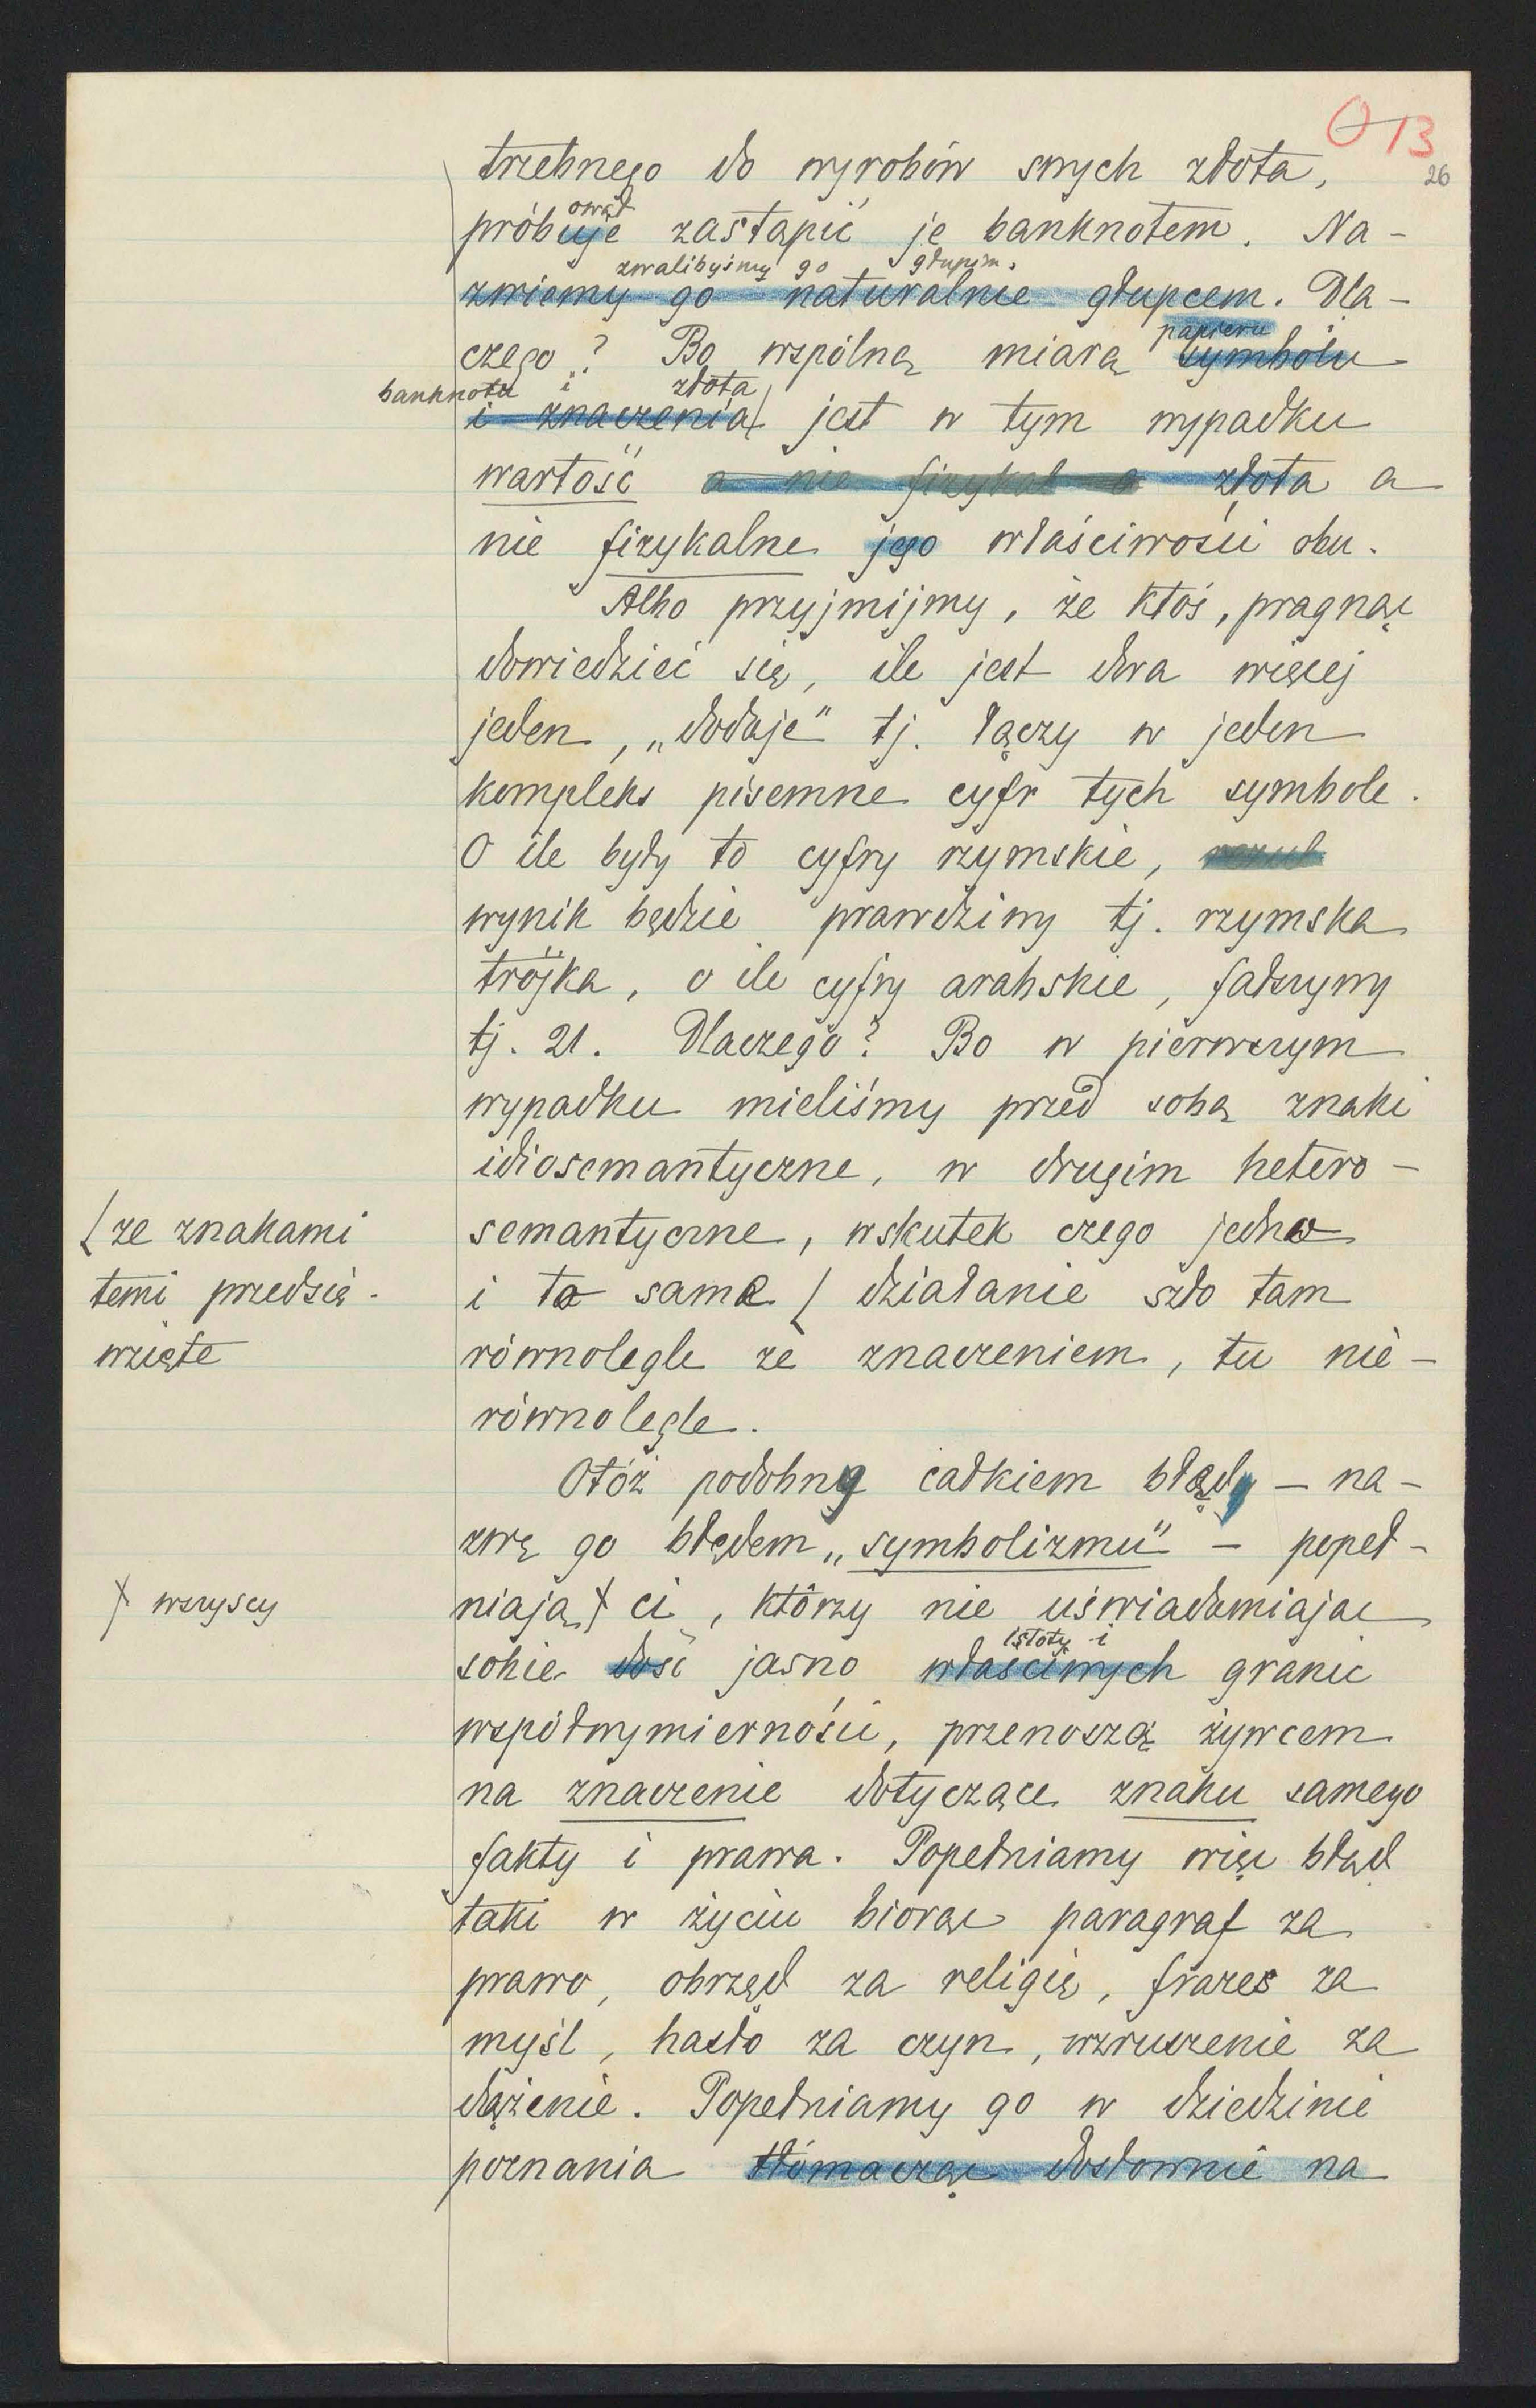 013
26
trzebnego do wyrobów swych złota,
ował
próbuje zastąpić je banknotem. Na-
zwalibyśmy go głupim.
zwiemy go naturalnie głupcem. Dla-
papieru
czego? Bo wspólną miarą symbolu
banknotu i złota
i znaczenia jest w tym wypadku
wartość a nie fizykal a złota a
nie fizykalne jego właściwości obu.
Albo przyjmijmy, że ktoś, pragnąc
dowiedzieć się, ile jest dwa więcej
jeden, „dodaje" tj. łączy w jeden
kompleks pisemne cyfr tych symbole.
O ile były to cyfry rzymskie,
wynik będzie prawdziwy tj. rzymska
trójka, o ile cyfry arabskie, fałszywy
tj. 21. Dlaczego? Bo w pierwszym
wypadku mieliśmy przed sobą znaki
idiosemantyczne, w drugim hetero-
semantyczne, wskutek czego jedno
i to same ( działanie szło tam
(ze znakami
temi przedsię-
wzięte
równolegle ze znaczeniem, tu nie-
równolegle.
Otóż podobny całkiem błąd – na-
zwę go błędem „symbolizmu" – popeł-
niają ł ci, którzy nie uświadamiając
ł wszyscy
istoty i
sobie dość jasno właściwych granic
współwymierności, przenoszą żywcem
na znaczenie dotyczące znaku samego
fakty i prawa. Popełniamy więc błąd
taki w życiu biorąc paragraf za
prawo, obrząd za religię, frazes za
myśl, hasło za czyn, wzruszenie za
dążenie. Popełniamy go w dziedzinie
poznania tłómacząc dosłownie na